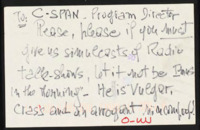 To: C-SPAN. Program Director
Please, please if you must
give us simulcasts of Radio
talk-shows, let it not be Imus
in the Morning - He is Vulgar,
Crass and an arrogant